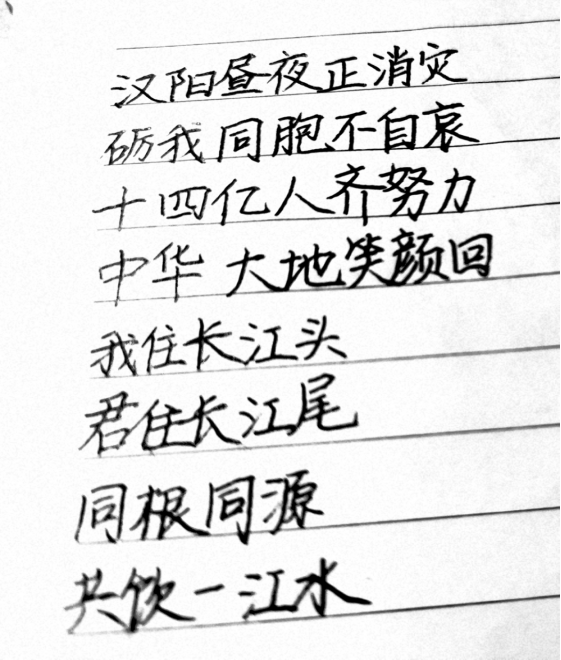 汉阳昼夜正消灾
砺我同胞不自哀
十四亿人齐努力
中华大地笑颜回
我住长江头
君住长江尾
同根同源
共饮一江水